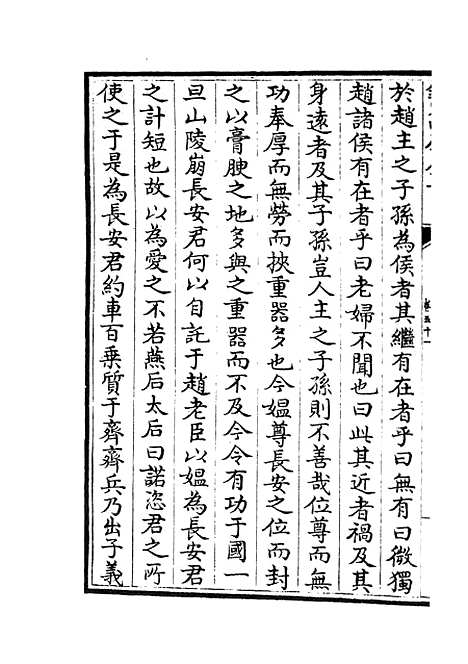 於趙主之子孫為侯者其繼有在者乎曰無有曰微獨
趙諸侯有在者乎曰老婦不聞也曰此其近者禍及其
身遠者及其子孫豈人主之子孫則不善哉位尊而無
功奉厚而無勞而挾重器多也今媼尊長安之位而封
之以膏腴之地多與之重器而不及今令有功于國一
旦山陵崩長安君何以自託于趙老臣以媼為長安君
之計短也故以為愛之不若燕后太后曰諾恣君之所
使之于是為長安君約車百乗質于齊齊兵乃出子義